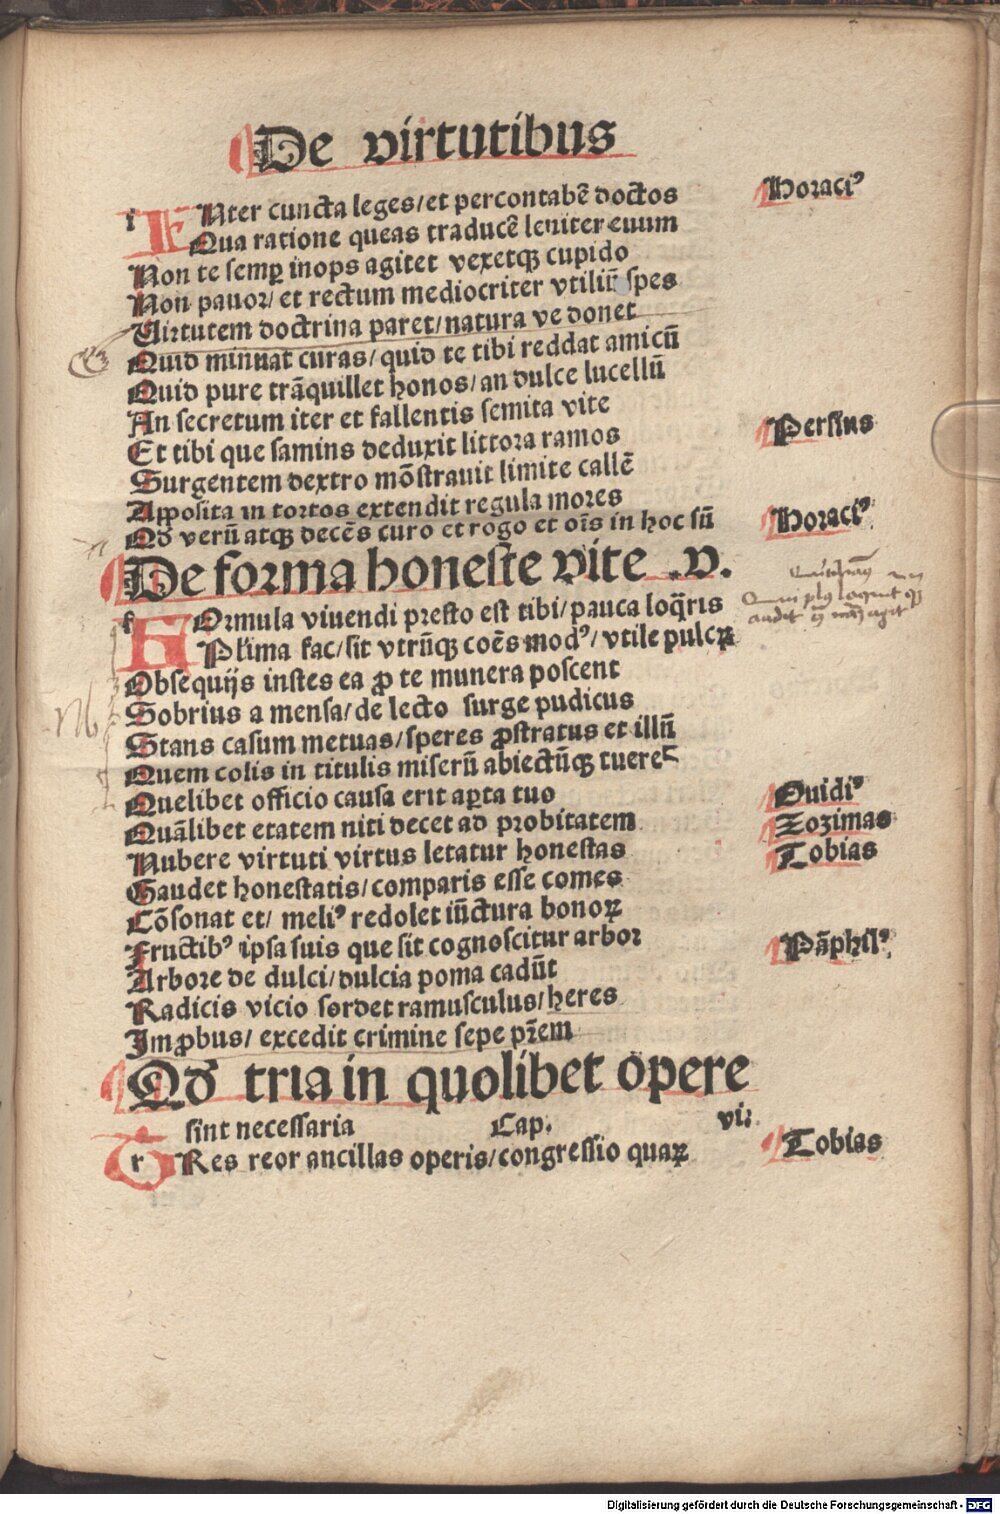 De virtutibus
INter cuncta leges/et percontabẽ doctos
Horaci⁹
Qua ratione queas traducẽ leniter euum
Non te semꝑ inops agitet vexetqꝫ cupido
Non pauor/et rectum mediocriter vtiliũ spes
Uirtutem doctrina paret/natura ve donet
Quid minuat curas/quid te tibi reddat amicũ
Quid pure trãquillet honos/an dulce lucellũ
An secretum iter et fallentis semita vite
Et tibi que samins deduxit littora ramos
Persius
Surgentem dextro mõstrauit limite callẽ
Apposita in tortos extendit regula mores
Qď verũ atqꝫ decẽs curo et rogo et oĩs in hoc sũ
Horaci⁹
De forma honeste vite .v.
FOrmula viuendi presto est tibi/pauca loq̃ris
Plĩma fac/sit vtrũqꝫ coẽs mod⁹/vtile pulcꝝ
Obsequijs instes ea ꝓ te munera poscent
Sobrius a mensa/de lecto surge pudicus
Stans casum metuas/speres ꝓstratus et illũ
Quem colis in titulis miserũ abiectũqꝫ tuere
Quelibet officio causa erit aꝑta tuo
Ouidi⁹
Quãlibet etatem niti decet ad probitatem
Zozimas
Nubere virtuti virtus letatur honestas
Tobias
Gaudet honestatis/comparis esse comes
Cõsonat et/ meli⁹ redolet iũctura bonoꝝ
Fructib⁹ ipsa suis que sit cognoscitur arbor
Pãphil⁹
Arbore de dulci/dulcia poma cadũt
Radicis vicio sordet ramusculus/heres
Imꝓbus/ excedit crimine sepe pr̃em
Qď tria in quolibet opere
sint necessaria Cap. vi.
TRes reor ancillas operis/congressio quaꝝ
Tobias
Digitalisierung gefördert durch die Deutsche Forschungsgemeinschaft - DFG